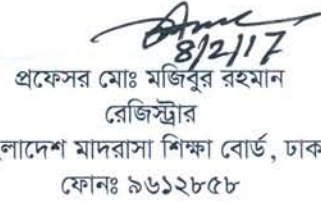 8/2/17
প্রফেসর মোঃ মজিবুর রহমান
রেজিস্ট্রার
লাদেশ মাদরাসা শিক্ষা বোর্ড, ঢাক
ফোনঃ ৯৬১২৮৫৮